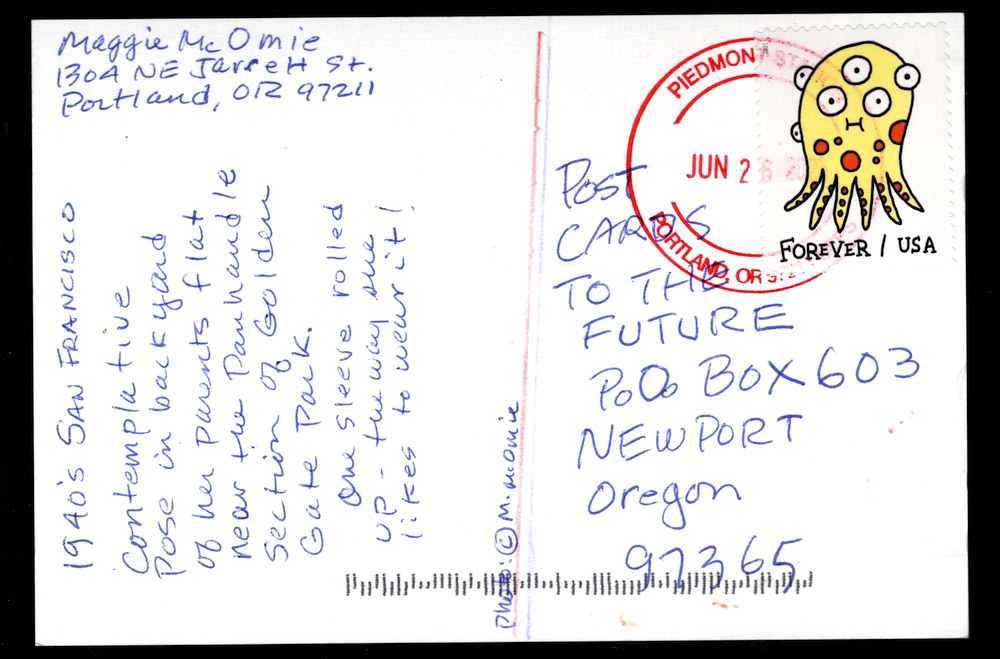 Maggie McOmie
1304 NE Jarrett St.
Portland, OR 97211
1940's SAN FRANCISCO
Contemplative
Pose in backyard
of her parents flat
near the Panhandle
section of Golden
Gate Park.
One sleeve rolled
UP - the way she
likes to wear it!
Photo: © M. McOmie
PIEDMONT STATION
JUN 26 20
PORTLAND, OR
FOREVER / USA
POST
CARDS
TO THE
FUTURE
P.O. BOX 603
NEWPORT
Oregon
97365